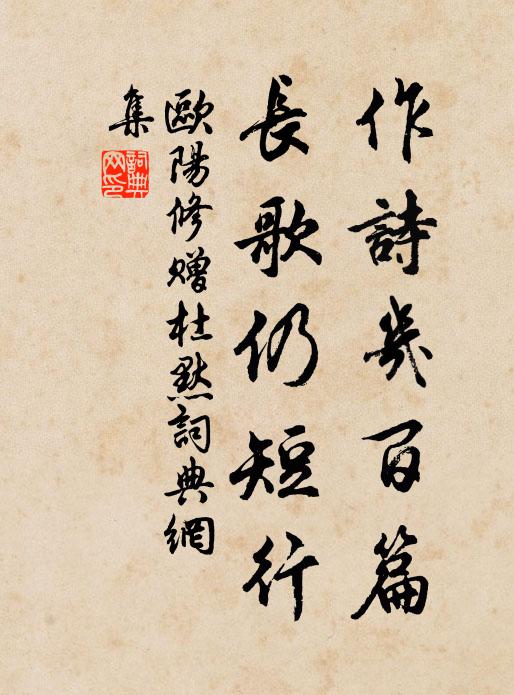 作詩幾百篇
長歌仍短行
歐陽修贈杜默詞典網
集
詞典
网印